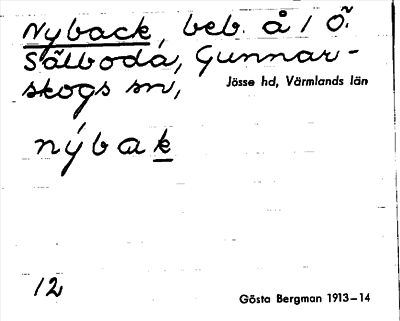 Nyback, beb. å 1 Ö.
Sälboda, Gunnar-
skogs sn,
Jösse hd, Värmlands län
nýbak
12
Gösta Bergman 1913-14